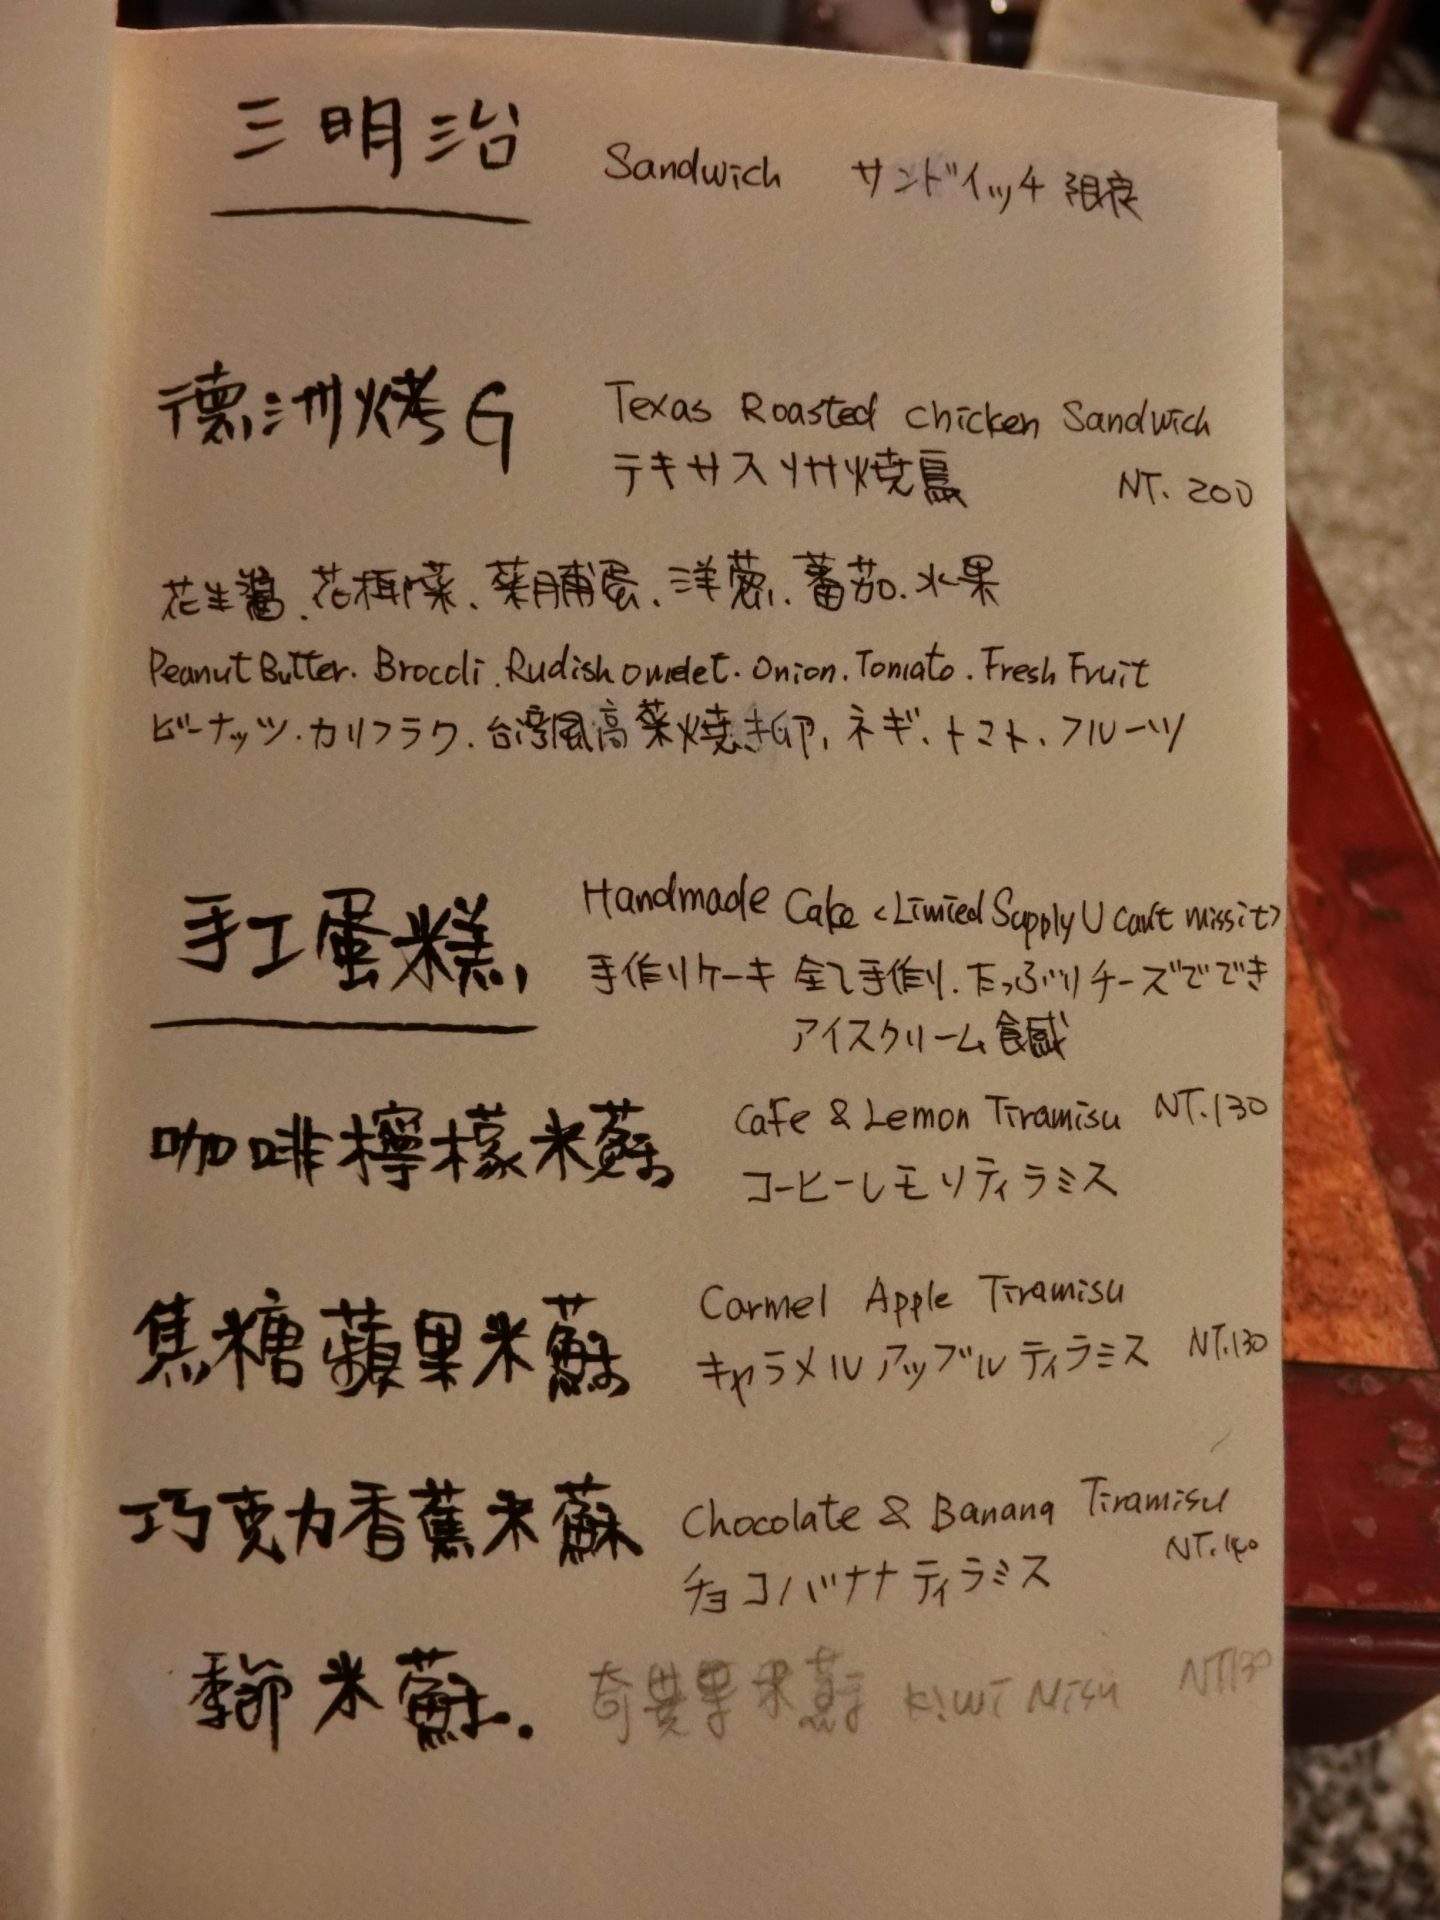 三明治 Sandwich サンドイッチ 限定
德洲烤G Texas Roasted Chicken Sandwich
テキサス州焼鳥 NT. 200
花生醬、花椰菜、菜脯蛋、洋蔥、蕃茄、水果
Peanut Butter. Broccoli. Rudish omelet. Onion. Tomato. Fresh Fruit
ピーナッツ.カリフラワ.台湾風高菜焼き卵、ネギ、トマト、フルーツ
手工蛋糕 Handmade Cake <Limied Supply U can't miss it>
手作りケーキ 全て手作り.たっぷりチーズででき
アイスクリーム食感
咖啡檸檬米蘇 Cafe & Lemon Tiramisu NT.130
コーヒーレモンティラミス
焦糖蘋果米蘇 Carmel Apple Tiramisu
キャラメルアップルティラミス NT.130
巧克力香蕉米蘇 Chocolate & Banana Tiramisu
NT.140
チョコバナナティラミス
季節米蘇. 奇異果米蘇 Kiwi Misu NT130